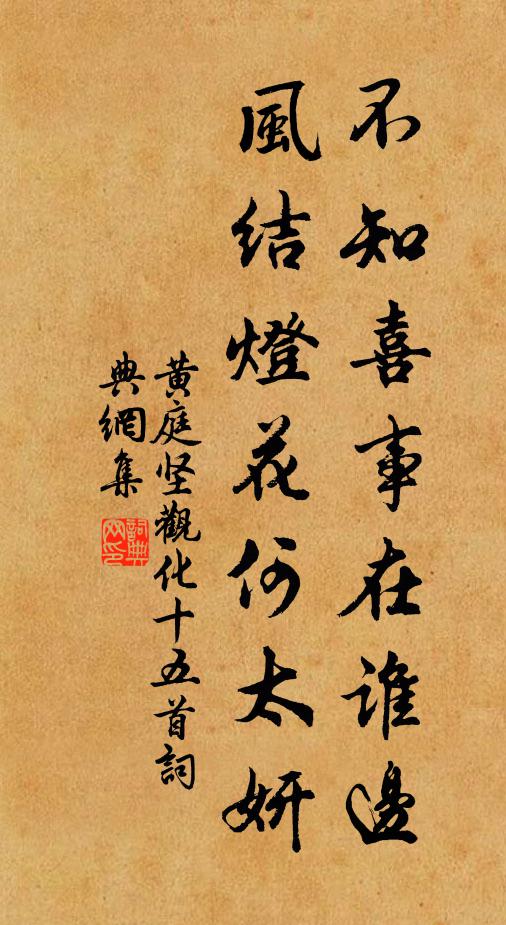 不知喜事在谁邊
風结燈花何太妍
黄庭坚觀化十五首詞
典網集
詞典网印